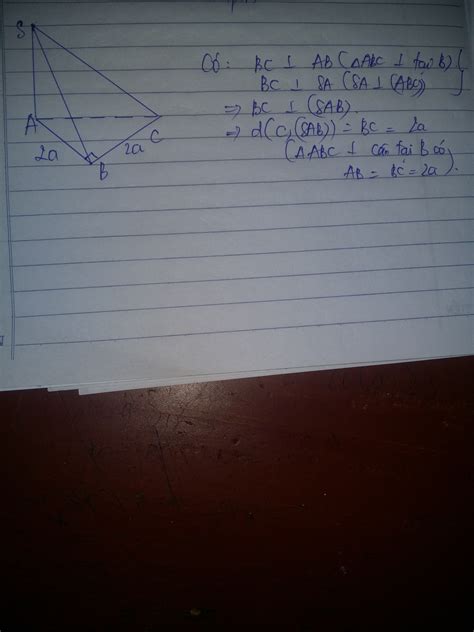 S
A
C
B
2a
2a
Có: BC ⊥ AB (ΔABC ⊥ tại B)
BC ⊥ SA (SA ⊥ (ABC))
⇒ BC ⊥ (SAB)
⇒ d(C, (SAB)) = BC = 2a
(ΔABC ⊥ cân tại B có
AB = BC = 2a).